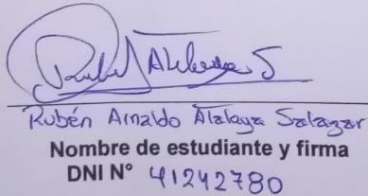 Rubén Arnaldo Atalaya Salazar
Nombre de estudiante y firma
DNI N° 41242780